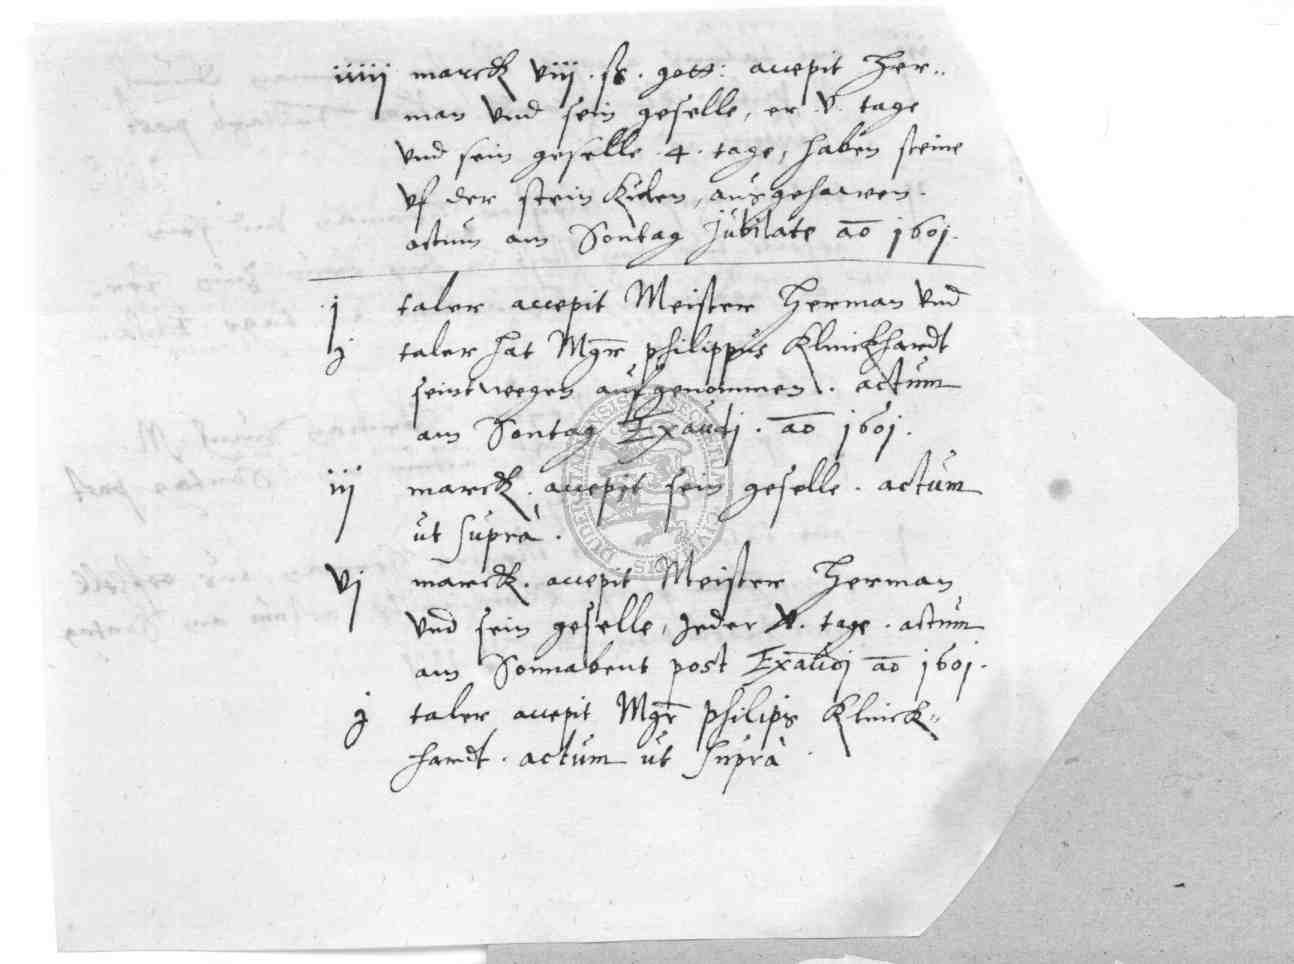 iiiij marck viij . ß . gott: accepit Her-
man vnd sein geselle, er .v. tage
vnd sein geselle .4. tage, haben steine
vf der stein Kulen, ausgehawen.
actum am Sontag Jubilate ao 1601.
j taler accepit Meister Herman vnd
j taler hat Mgr philippus Klinckhardt
seintweegen aufgenommen. actum
am Sontag Exaudj . ao 1601.
iij marck . accepit sein geselle . actum
ut suprà .
vj marck . accepit Meister Herman
vnd sein geselle, Jeder v. tage . actum
am Sonnabent post Exaudj ao 1601.
j taler accepit Mgr philips Klinck-
hardt . actum ut suprà .